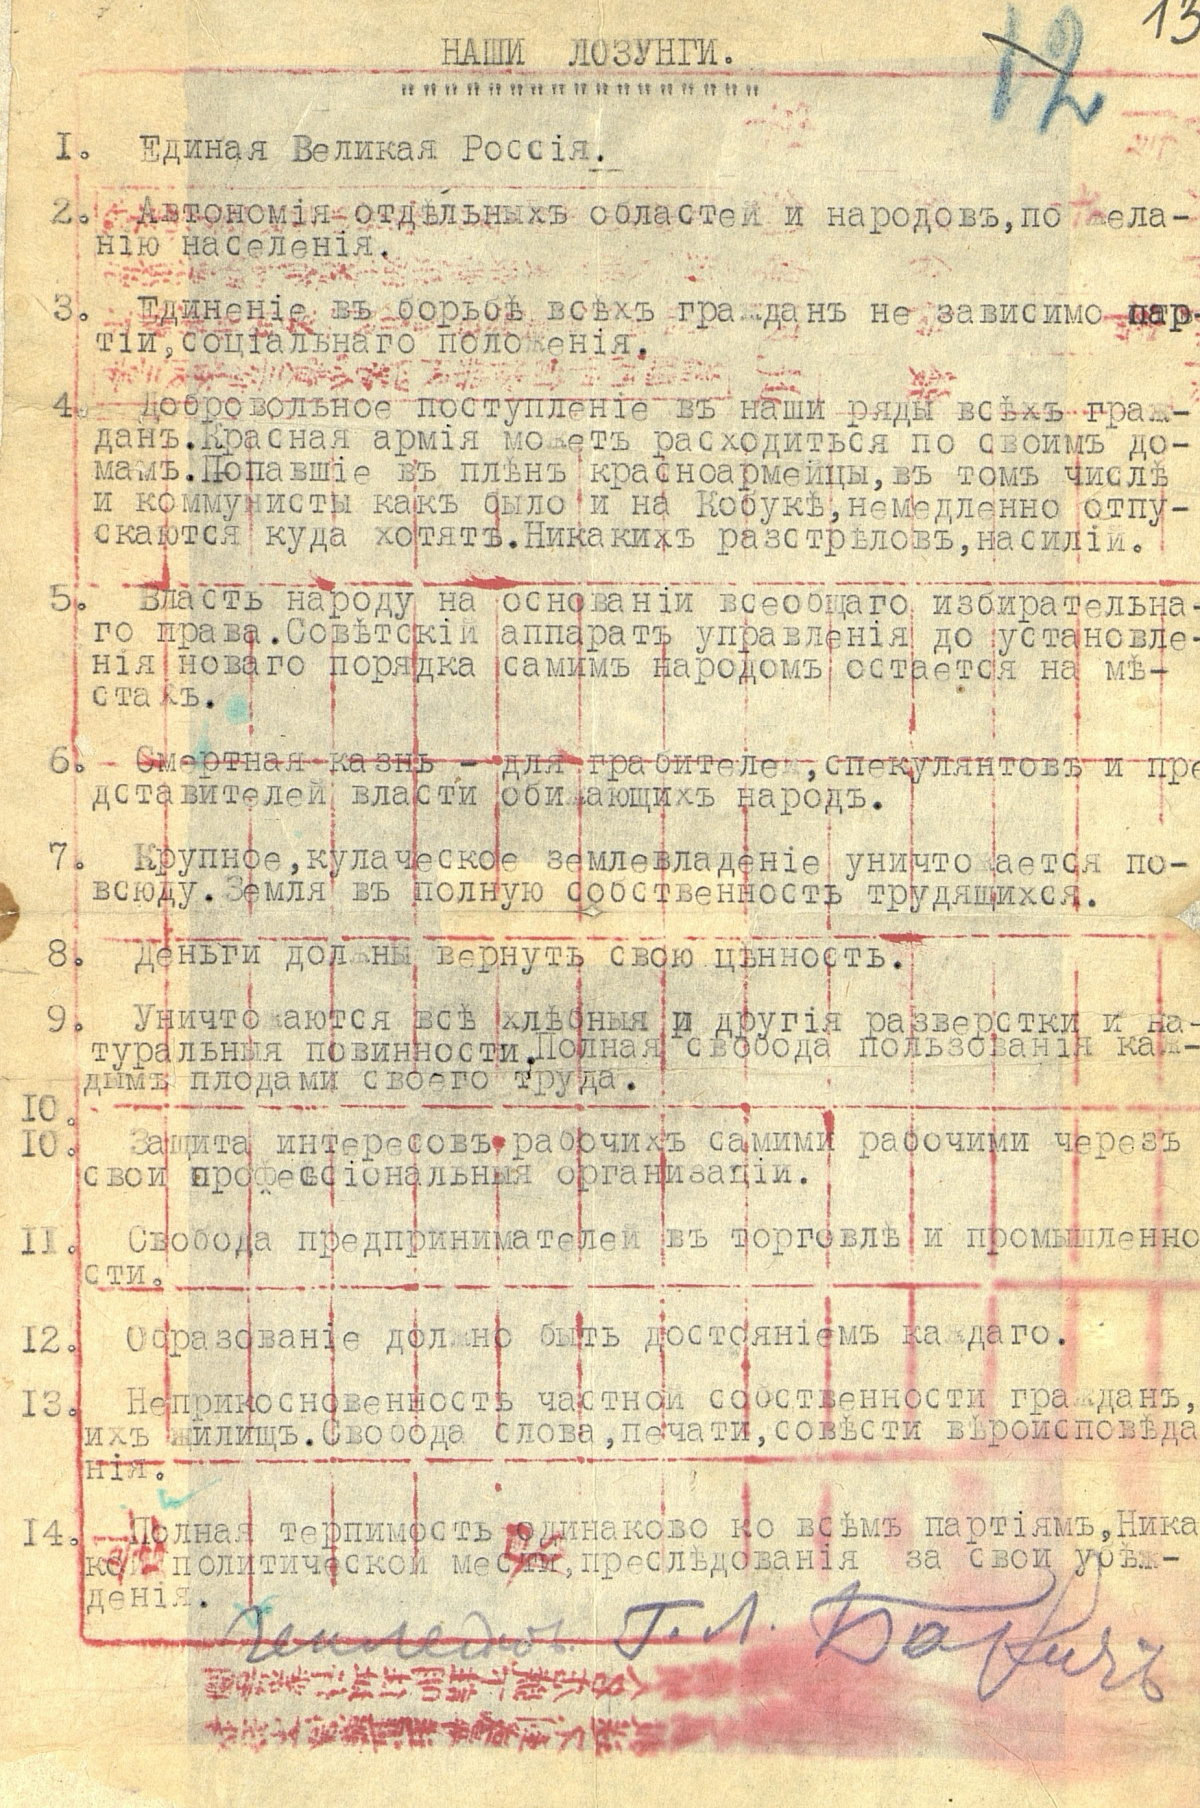 13
12
НАШИ ЛОЗУНГИ.
"""""""""""""""""""""""
I. Единая Великая Россія.
2. Автономія отдѣльныхъ областей и народовъ,по жела-
нію населенія.
3. Единеніе въ борьбѣ всѣхъ гражданъ не зависимо пар-
тіи,соціальнаго положенія.
4. Добровольное поступленіе въ наши ряды всѣхъ граж-
данъ.Красная армія можетъ расходиться по своимъ до-
мамъ.Попавшіе въ плѣнъ красноармейцы,въ томъ числѣ
и коммунисты какъ было и на Кобукѣ,немедленно отпу-
скаются куда хотятъ.Никакихъ разстрѣловъ,насилій.
5. Власть народу на основаніи всеобщаго избирательна-
го права.Совѣтскій аппаратъ управленія до установле-
нія новаго порядка самимъ народомъ остается на мѣ-
стахъ.
6. Смертная казнь - для грабителей,спекулянтовъ и пре
дставителей власти обижающихъ народъ.
7. Крупное,кулаческое землевладеніе уничтожается по-
всюду.Земля въ полную собственность трудящихся.
8. Деньги должны вернуть свою цѣнность.
9. Уничтожаются всѣ хлѣбныя и другія разверстки и на-
туральныя повинности.Полная свобода пользованія каж-
дымъ плодами своего труда.
IO.
IO. Защита интересовъ рабочихъ самими рабочими черезъ
свои професіональныя организаціи.
II. Свобода предпринимателей въ торговлѣ и промышленно
сти.
I2. Образованіе должно быть достояніемъ каждаго.
I3. Неприкосновенность частной собственности гражданъ,
ихъ жилищъ.Свобода слова,печати,совѣсти вѣроисповѣда
нія.
I4. Полная терпимость одинаково ко всѣмъ партіямъ,Ника
кой политической мести,преслѣдованія за свои убѣж-
денія.
Г. Л.